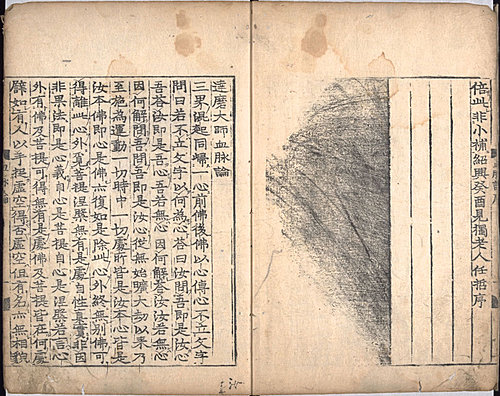 倍此非小補紹興癸酉見獨老人任哲序
達磨大師血脉論
三界混起同歸一心前佛後佛以心傳心不立文字
問曰若不立文字以何為心答曰汝問吾即是汝心
吾答汝即是吾心吾若無心因何解答汝汝若無心
因何解問吾問吾即是汝心從無始曠大劫以來乃
至施為運動一切時中一切處所皆是汝本心皆是
汝本佛即心是佛亦復如是除此心外終無別佛可
得離此心外覓菩提涅槃無有是處自性真實非因
非果法即是心義自心是菩提自心是涅槃若言心
外有佛及菩提可得無有是處佛及菩提皆在何處
譬如有人以手提虛空得否虛空但有名亦無相貌